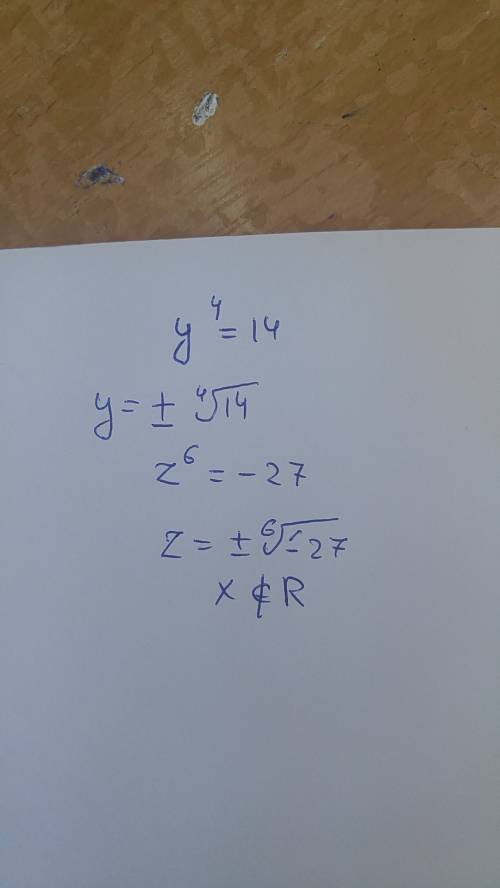 y⁴ = 14
y = ± ⁴√14
z⁶ = - 27
z = ± ⁶√-27
x ∉ R